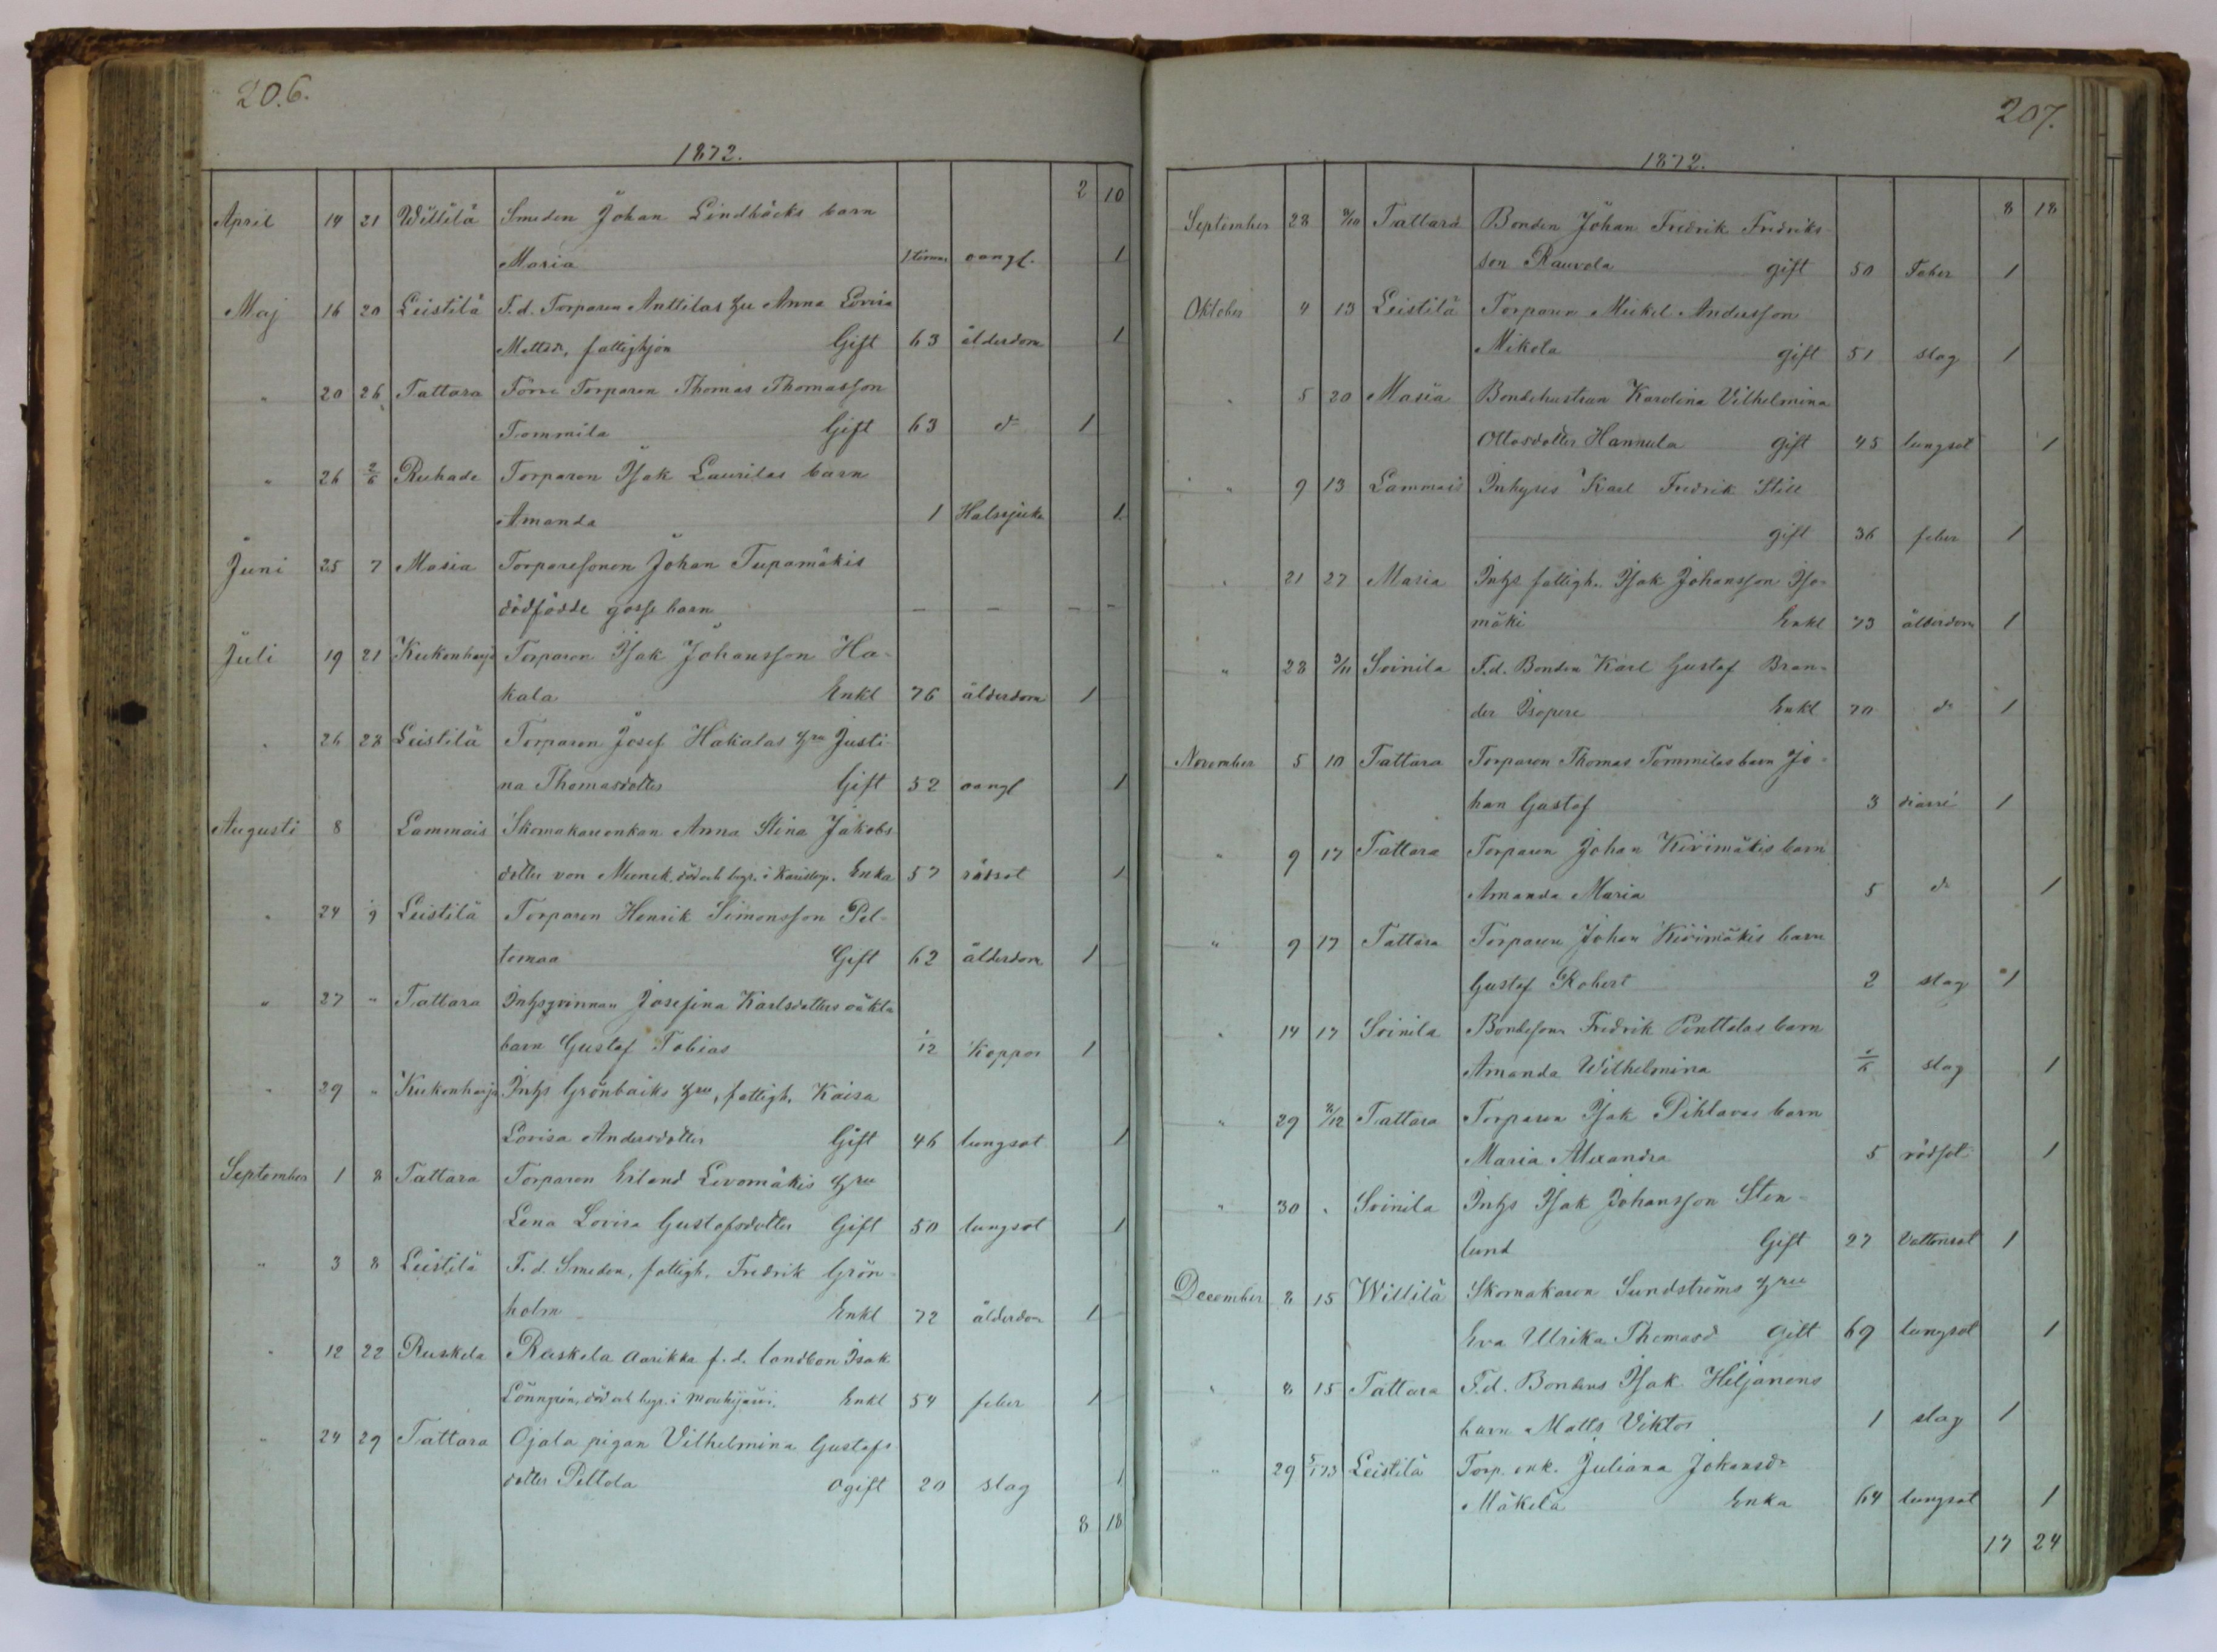 206.
1872.
2 10
April 14 21 Willilä Smeden Johan Lindbäcks barn
Maria 1 timme oangf. 1
Maj 16 20 Leistilä F.d. Torparen Anttilas hu Anna Lovisa
Mattsdr, fattighjon Gift 63 ålderdom 1
" 20 26 Tattara Förre Torparen Thomas Thomasson
Tommila Gift 63 do 1
" 26 2/6 Ruhade Torparen Isak Laurilas barn
Amanda 1 Halssjuka 1
Juni 25 7 Masia Torparesonen Johan Tupamäkis
dödfödde gosse barn — — — —
Juli 19 21 Kukonharja Torparen Isak Johansson Ha-
kala Enkl 76 ålderdom 1
" 26 28 Leistilä Torparen Josef Hakalas hru Justi-
na Thomasdotter Gift 52 oangf 1
Augusti 8 Lammais Skomakareenkan Anna Stina Jakobs
dotter von Munck, död och begr. i Enka 57 rötsot 1
" 24 1/9 Leistilä Torparen Henrik Simonsson Pel-
tomaa Gift 62 ålderdom 1
" 27 " Tattara Inhsqvinnan Josefina Karlsdotters oäkta
barn Gustaf Tobias 1/12 Koppor 1
" 29 " Kukonharja Inhs Grönbäcks hru, fattigh. Kaisa
Lovisa Andersdotter Gift 46 lungsot 1
September 1 8 Tattara Torparen Erland Levomäkis hru
Lena Lovisa Gustafsdotter Gift 50 lungsot 1
" 3 8 Leistilä F.d. Smeden, fattigh. Fredrik Grön-
holm Enkl 72 ålderdom 1
" 12 22 Ruskela Ruskela Aarikka f.d. landbon Isak
Lönngrén, död och begr. i Mouhijärvi. Enkl 54 feber 1
" 24 29 Tattara Ojala pigan Vilhelmina Gustafs
dotter Peltola Ogift 20 slag 1
8 18
207.
1872.
8 18
September 28 /10 Tattara Bonden Johan Fredrik Fredriks-
son Rauvola gift 50 Feber 1
Oktober 4 13 Leistilä Torparen Mickel Andersson
Mikola gift 51 slag 1
" 5 20 Masia Bondehustrun Karolina Vilhelmina
Ottosdotter Hannula gift 45 lungsot 1
" 9 13 Lammais Inhyses Karl Fredrik Still
gift 36 feber 1
" 21 27 Masia Inhs fattigh. Isak Johansson Iso-
mäki Enkl 73 ålderdom 1
" 28 3/11 Soinila F.d. Bonden Karl Gustaf Bran-
der Isopere Enkl 70 do 1
November 5 10 Tattara Torparen Thomas Tommilas barn Jo-
han Gustaf 3 diarré 1
" 9 17 Tattara Torparen Johan Kivimäkis barn
Amanda Maria 5 do 1
" 9 17 Tattara Torparen Johan Kivimäkis barn
Gustaf Robert 2 slag 1
" 14 17 Soinila Bondeson Fredrik Penttalas barn
Amanda Wilhelmina 1/6 slag 1
" 29 /12 Tattara Torparen Isak Pihlavas barn
Maria Alexandra 5 rödsot 1
" 30 " Soinila Inhs Isak Johansson Sten-
lund Gift 27 Vattensot 1
December 8 15 Willilä Skomakaren Sundströms hru
Eva Ulrika Thomasd Gift 69 lungsot 1
" 8 15 Tattara F.d. Bondens Isak Hiljanens
barn Matts Viktor 1 slag 1
" 29 5/1 73 Leistilä Torp. enk. Juliana Johansdr
Mäkelä Enka 64 lungsot 1
17 24